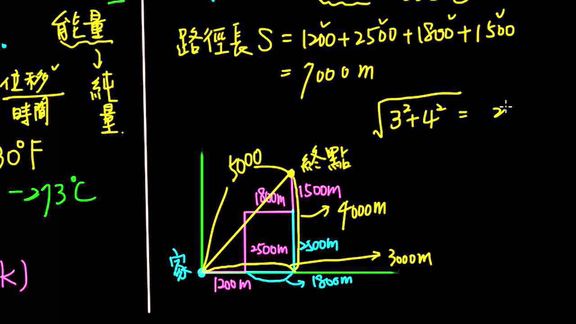 能量
位移
時間
純量
30°F
-273°C
k)
路徑長 S = 1200+2500+1800+1500
= 7000m
√3²+4² =
5000
終點
1800m
1500m
4000m
2500m
2500m
3000m
家
1200m
1800m